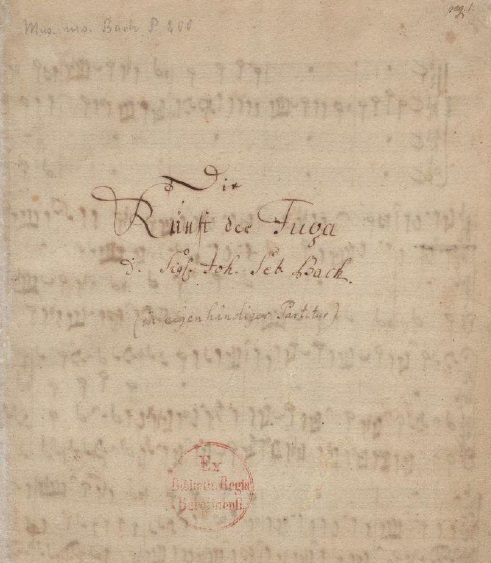 Mus. ms. Bach P 200
Die
Kunst der Fuga
d. Sigl. Joh. Seb. Bach.
(in eigenhändiger Partitur)
Ex
Biblioth. Regia
Berolinensi.